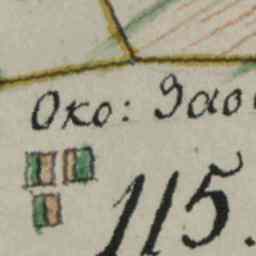 Око: Зао
115.